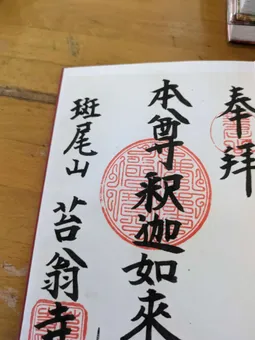 奉拝
本尊釈迦如來
斑尾山
苔翁寺